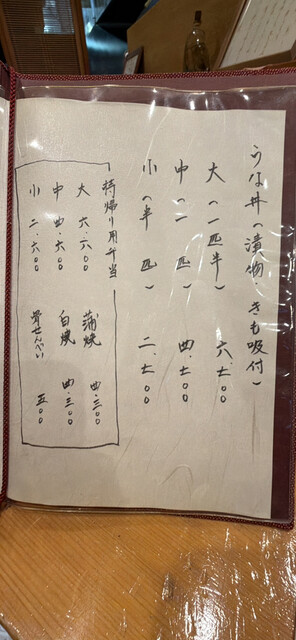 うな丼（漬物・きも吸付）
大（一匹半） 六.七〇〇
中（一匹） 四.七〇〇
小（半匹） 二.七〇〇
持帰り用弁当
大 六.六〇〇 蒲焼 四.三〇〇
中 四.六〇〇 白焼 四.三〇〇
小 二.六〇〇 骨せんべい 五〇〇